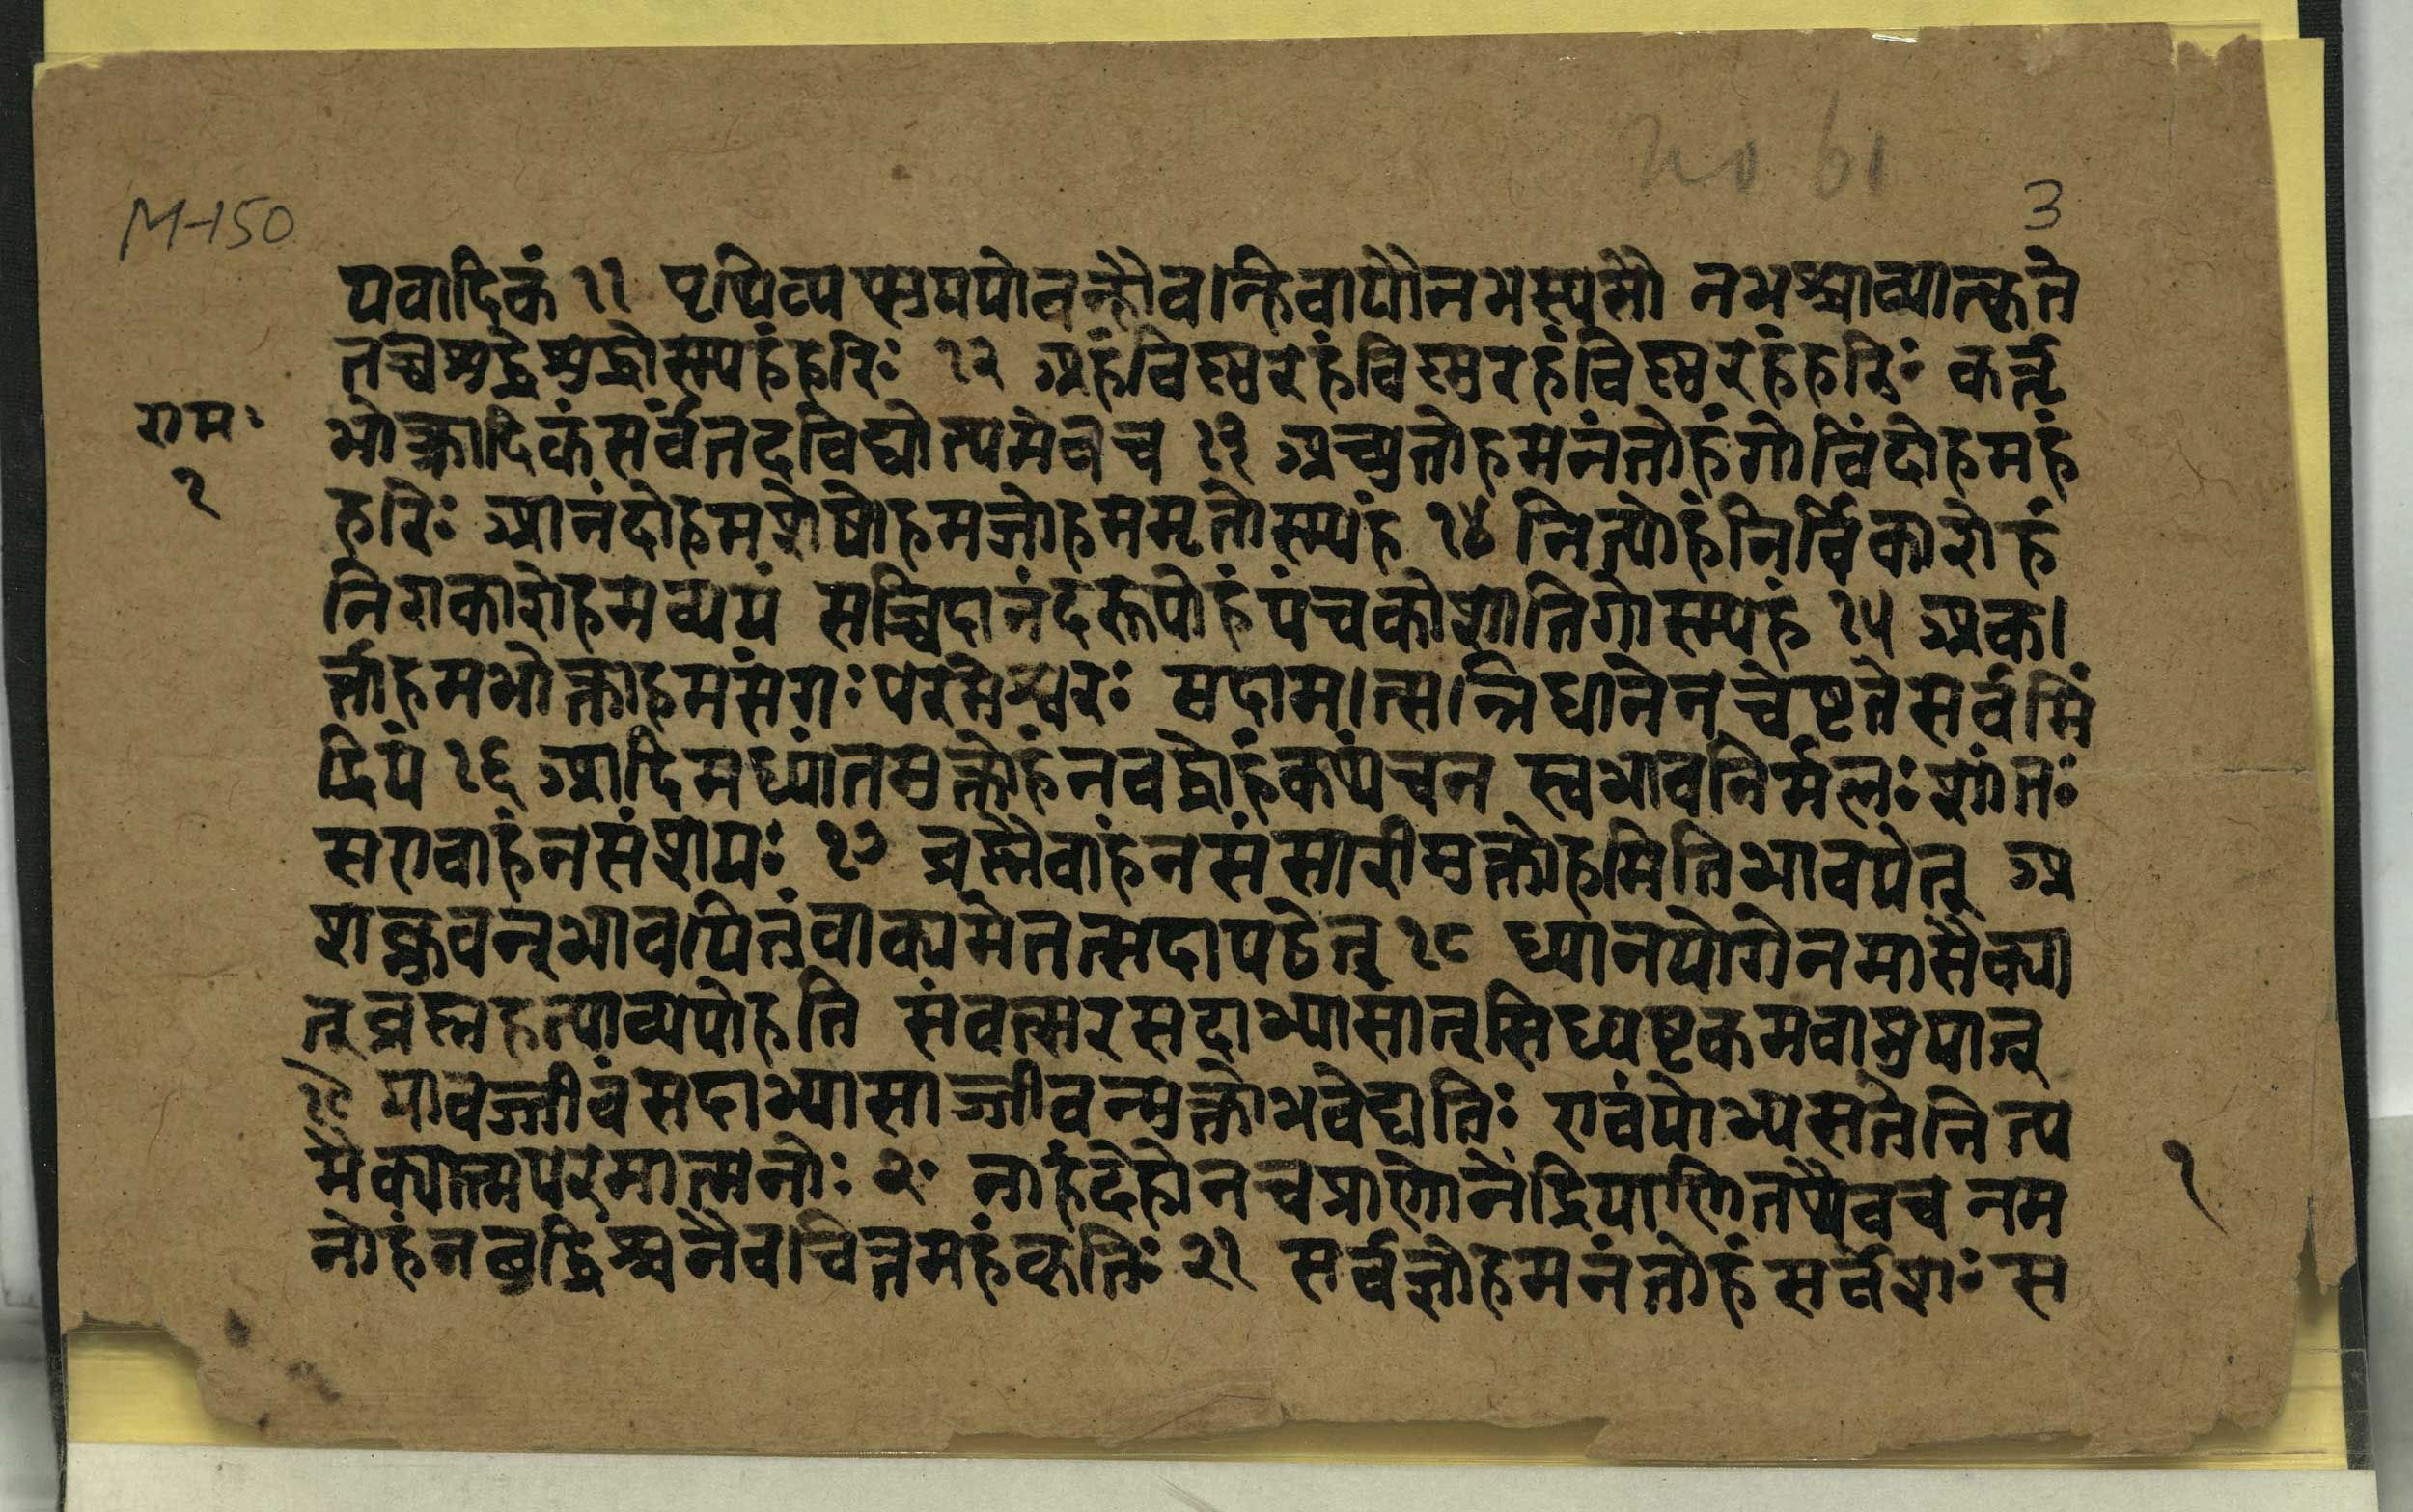 no 61
M-150
3
यवादिकं ११ पृथिव्यप्सुपयोवन्हौवन्हिवायौनभस्यसौ नभश्चाव्याकृते
तच्चशुद्धेशुद्धोस्म्यहंहरिः १२ अहंविष्णुरहंविष्णुरहंविष्णुरहंहरिः कर्तृ
भोक्त्रादिकंसर्वंतदविद्योत्थमेवच १३ अच्युतोहमनंतोहंगोविंदोहमहं
हरिः आनंदोहमशेषोहमजोहममृतोस्म्यहं १४ नित्योहंनिर्विकारोहं
निराकारोहमव्ययं सच्चिदानंदरूपोहंपंचकोशातिगोस्म्यहं १५ अक।
र्त्ताहमभोक्ताहमसंगःपरमेश्वरः सदामत्सन्निधानेनचेष्टतेसर्वमिं
द्रियं १६ आदिमध्यांतमुक्तोहंनबद्धोहंकथंचन स्वभावनिर्मलःशांतः
सएवाहंनसंशयः १७ ब्रह्मैवाहंनसंसारीमुक्तोहमितिभावयेत् अ
शक्नुवन्भावयितुंवाक्यमेतत्सदापठेत् १८ ध्यानयोगेनमासैक्या
त्ब्रह्महत्याव्यपोहति संवत्सरसदाभ्यासात्सिध्यष्टकमवाप्नुयात्
१९ यावज्जीवंसदाभ्यासाज्जीवन्मुक्तोभवेद्यतिः एवंयोभ्यसतेनित्य
मैक्यात्मपरमात्मनोः २० नाहंदेहोनचप्राणोनेंद्रियाणितथैवच नम
नोहंनबुद्धिश्चनैवचित्तमहंकृतिः २१ सर्वज्ञोहमनंतोहंसर्वेशः स
राम:
१
१